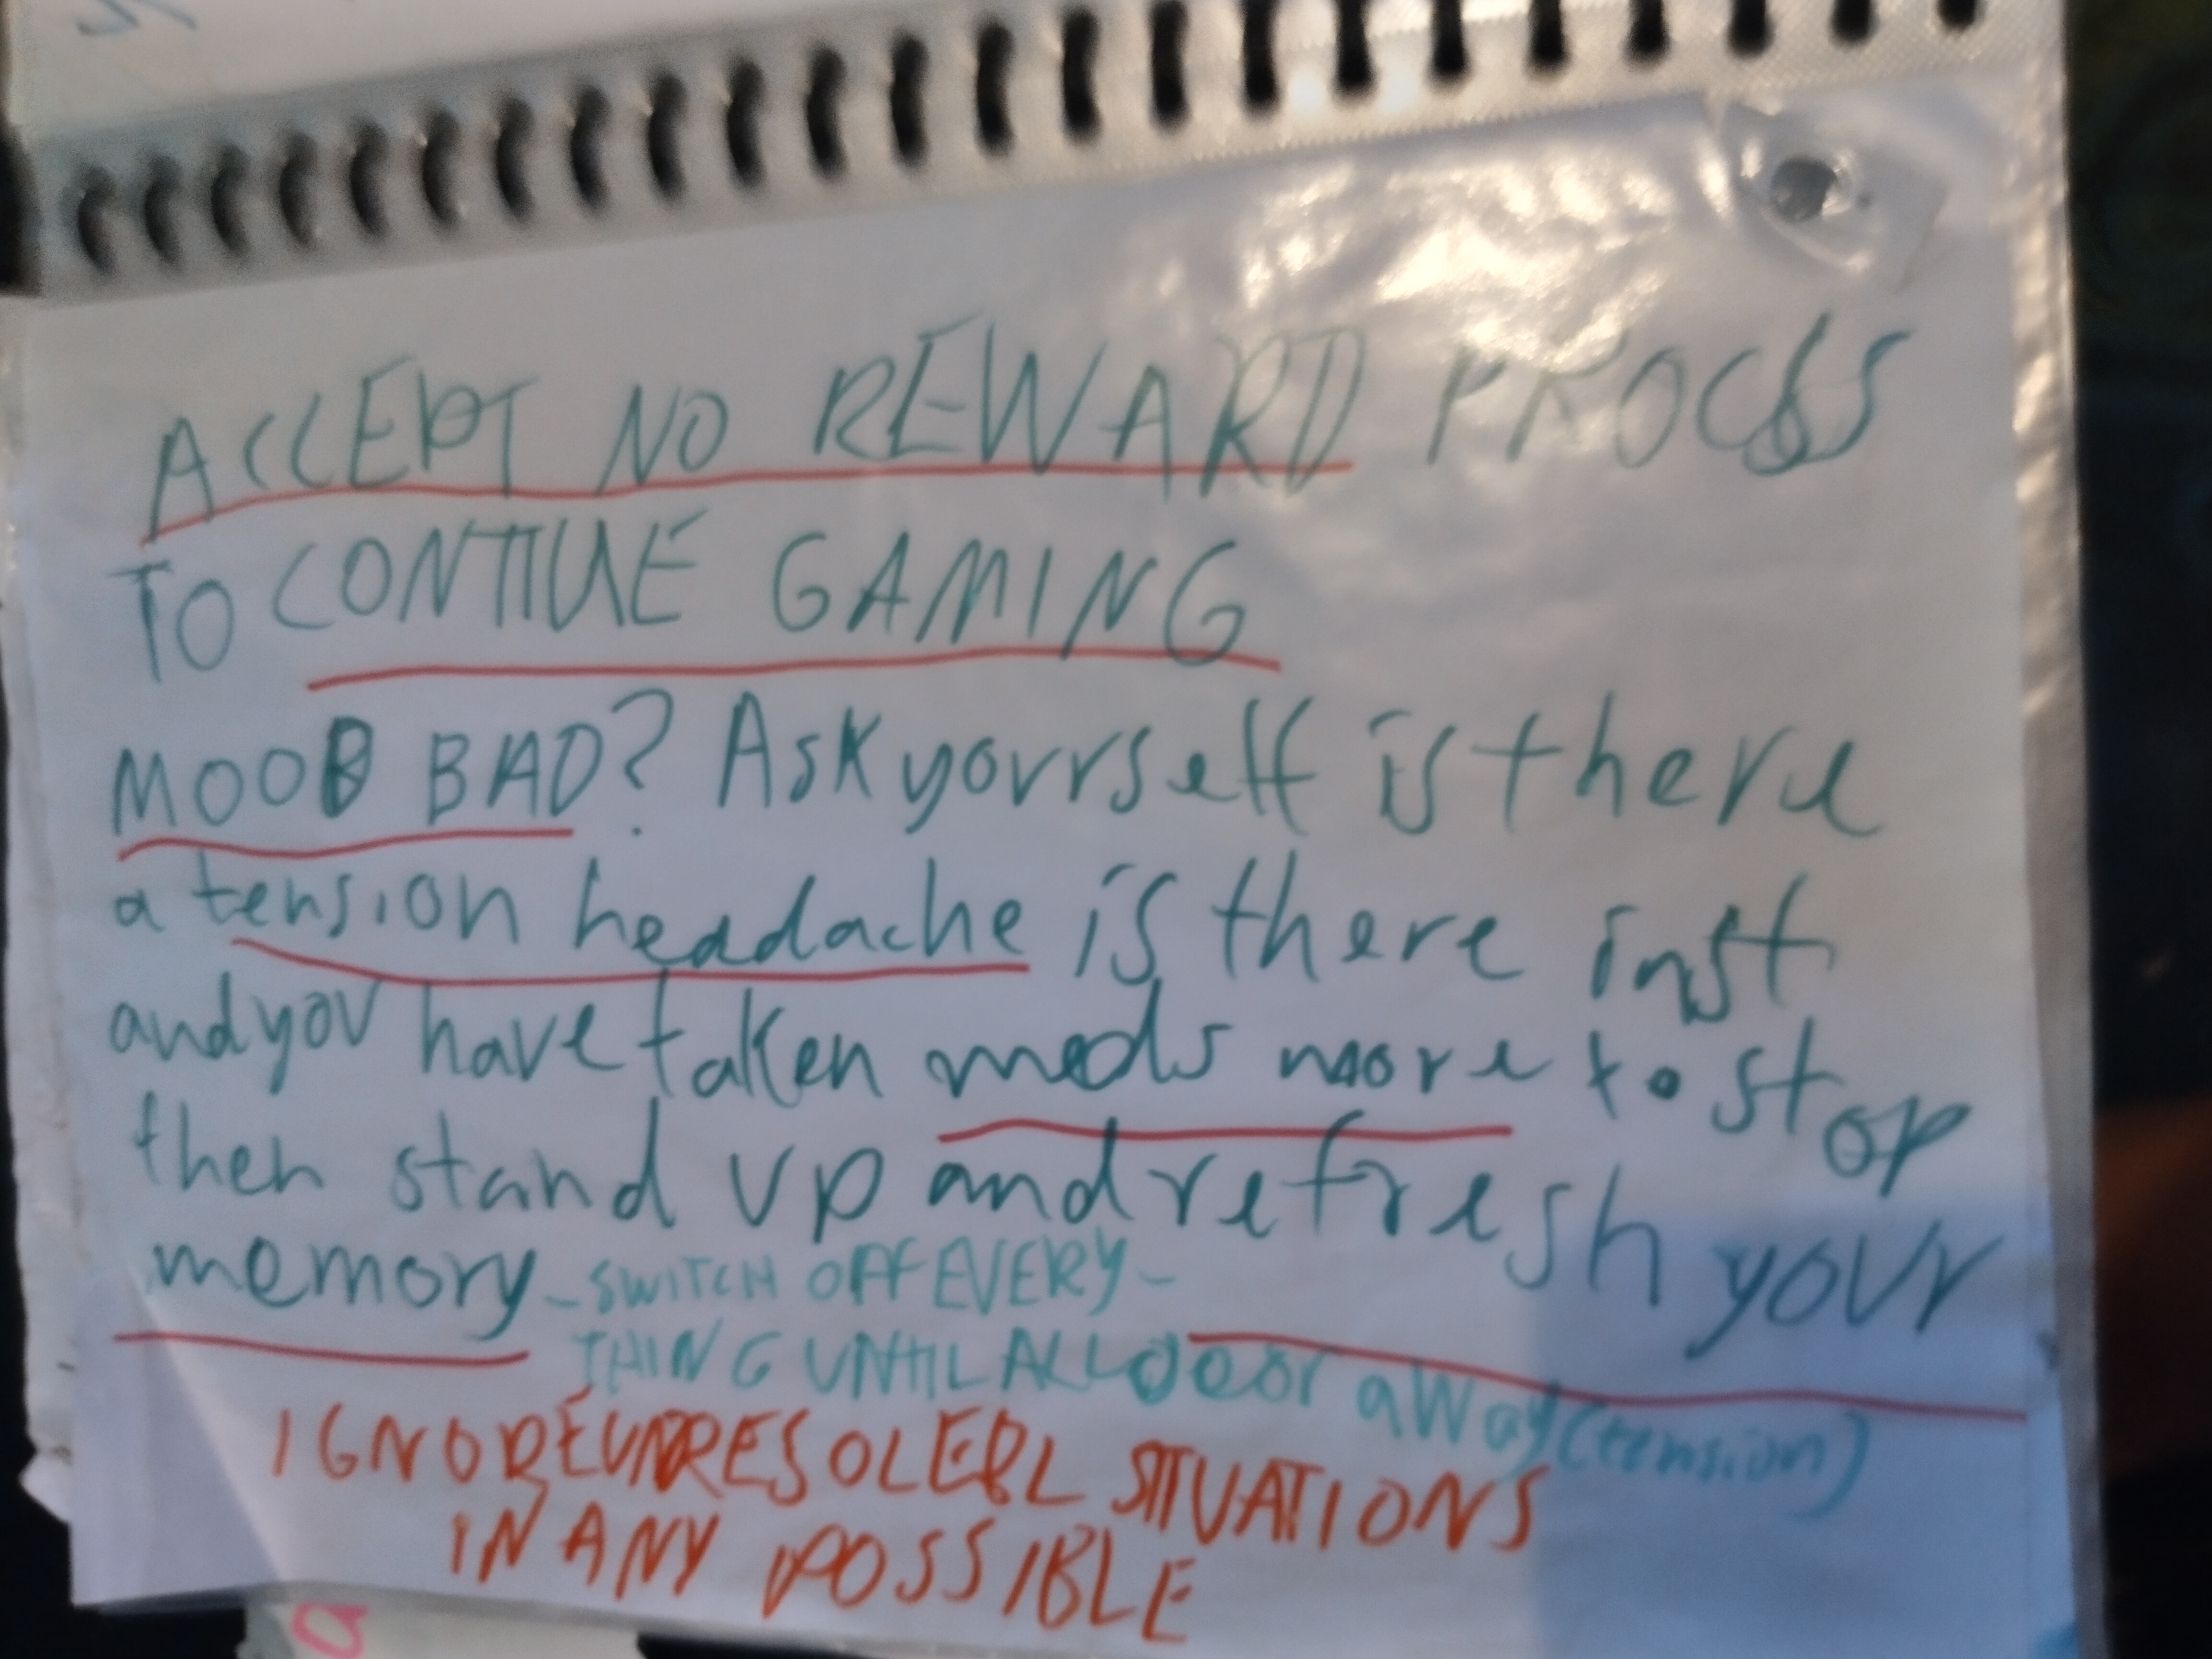 ACCEPT NO REWARD PROCSS
TO CONTIUE GAMING
MOOD BAD? Ask yourself is there
a tension headache is there inst
and you have taken meds more to stop
then stand up and refresh your
memory - SWITCH OFF EVERY-
THING UNTIL ALL away (tension)
IGNORE SITUATIONS
IN ANY POSSIBLE